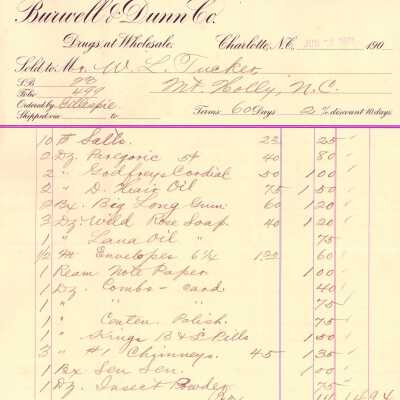 Burwell & Dunn Co.
Drugs at Wholesale. Charlotte, N.C. 190
Sold to Mr W. L. Tucker
S.B. 93 Mt. Holly, N.C.
Folio 499
Ordered by Gillespie Terms 60 Days 2% discount 10 days
Shipped via to
10 # Salts. 2½ 25
2 Dz. Paregoric 40 80
2 " Godfreys Cordial 50 100
2 " D. Oil 75 150
2 Bx. Big Long Gum 60 120
3 Dz. Wild Rose Soap 40 120
1 " Lana Oil " 75
1/2 M Envelopes 6¼ 120 60
1 Ream Note Paper 100
1 Dz. Combs - card 40
1 " " " 75
1 " Polish. 75
1 " Kings B & L Pills 150
3 " #1 Chimneys. 45 135
1 Bx Sen Sen. 100
1 Dz. Insect Powder 75
1494